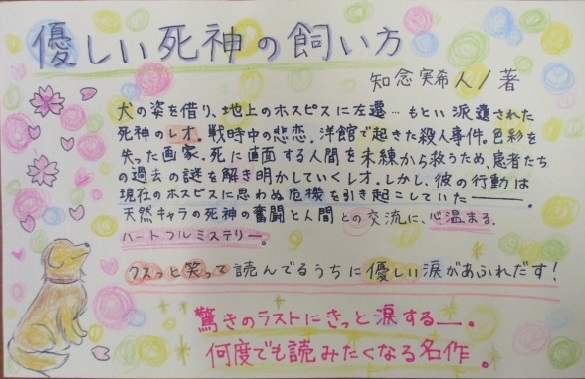 優しい死神の飼い方
知念実希人/著
犬の姿を借り、地上のホスピスに左遷…もとい派遣された
死神のレオ。戦時中の悲恋。洋館で起きた殺人事件。色彩を
失った画家。死に直面する人間を未練から救うため、患者たち
の過去の謎を解き明かしていくレオ。しかし、彼の行動は
現在のホスピスに思わぬ危機を引き起こしていた――。
天然キャラの死神の奮闘と人間との交流に、心温まる
ハートフルミステリー。
クスッと笑って読んでるうちに優しい涙があふれだす!
驚きのラストにきっと涙する―。
何度でも読みたくなる名作。